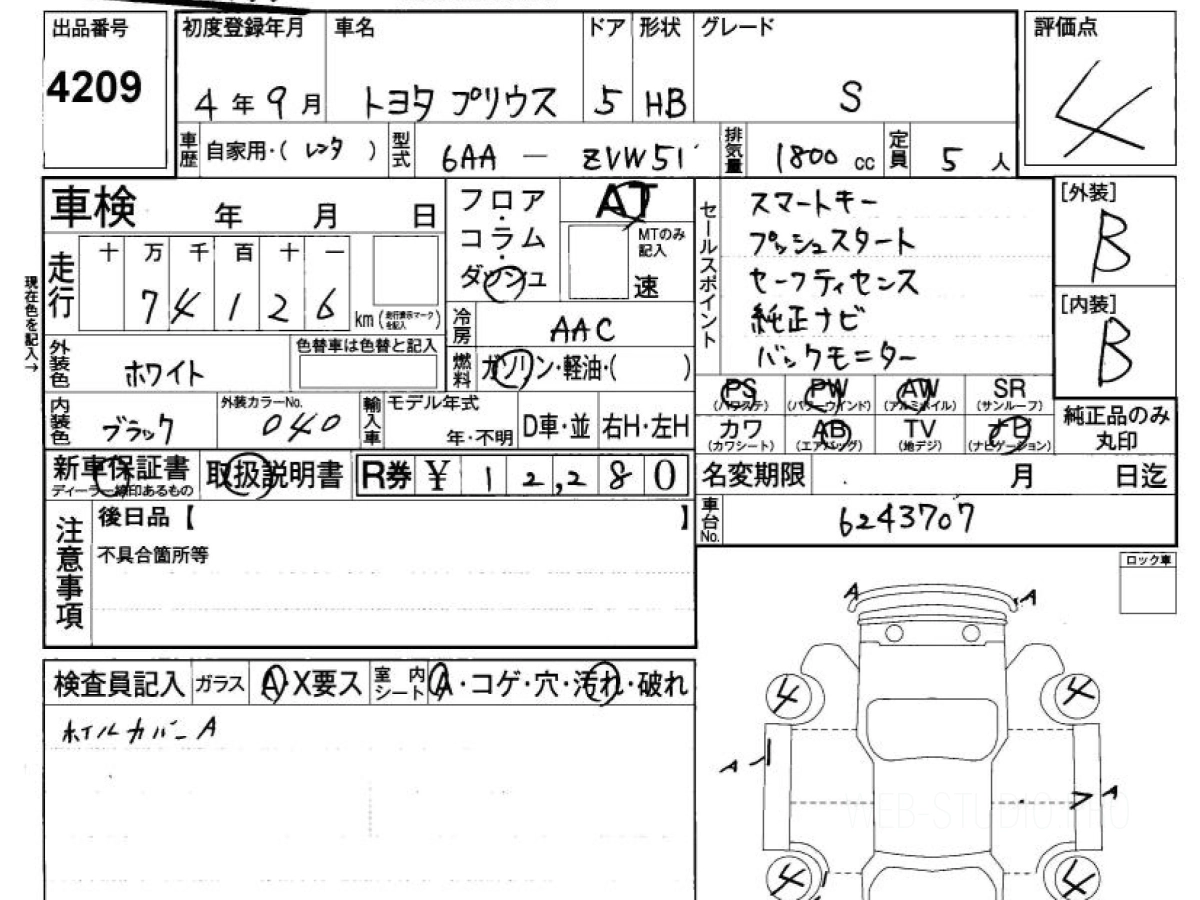 出品番号
4209
初度登録年月
4年9月
車名
トヨタ プリウス
ドア
5
形状
HB
グレード
S
評価点
4
車歴
自家用・( レンタ )
型式
6AA - ZVW51
排気量
1800 cc
定員
5 人
車検 年 月 日
現在色を記入→
走行
十 万 千 百 十 一
7 4 1 2 6
km (走行表示マークを記入)
フロア・コラム・ダッシュ
AT
MTのみ記入
速
冷房
AAC
燃料
ガソリン・軽油・( )
外装色
ホワイト
色替車は色替と記入
内装色
ブラック
外装カラーNo.
040
輸入車
モデル年式
年・不明
D車・並
右H・左H
セールスポイント
スマートキー
プッシュスタート
セーフティセンス
純正ナビ
バックモニター
[外装]
B
[内装]
B
PS (パワステ)
PW (パワーウインド)
AW (アルミホイル)
SR (サンルーフ)
カワ (カワシート)
AB (エアバッグ)
TV (地デジ)
ナビ (ナビゲーション)
純正品のみ
丸印
新車保証書
ディーラー線印あるもの
取扱説明書
R券 ¥ 1 2,2 8 0
名変期限 月 日迄
車台No.
6243707
注意事項
後日品【 】
不具合箇所等
ロック車
検査員記入
ガラス
A・X要ス
室内シート
A・コゲ・穴・汚れ・破れ
ホイルカバー A
A
A
4
4
A
A
4
4
WEB-STUDIO.PRO